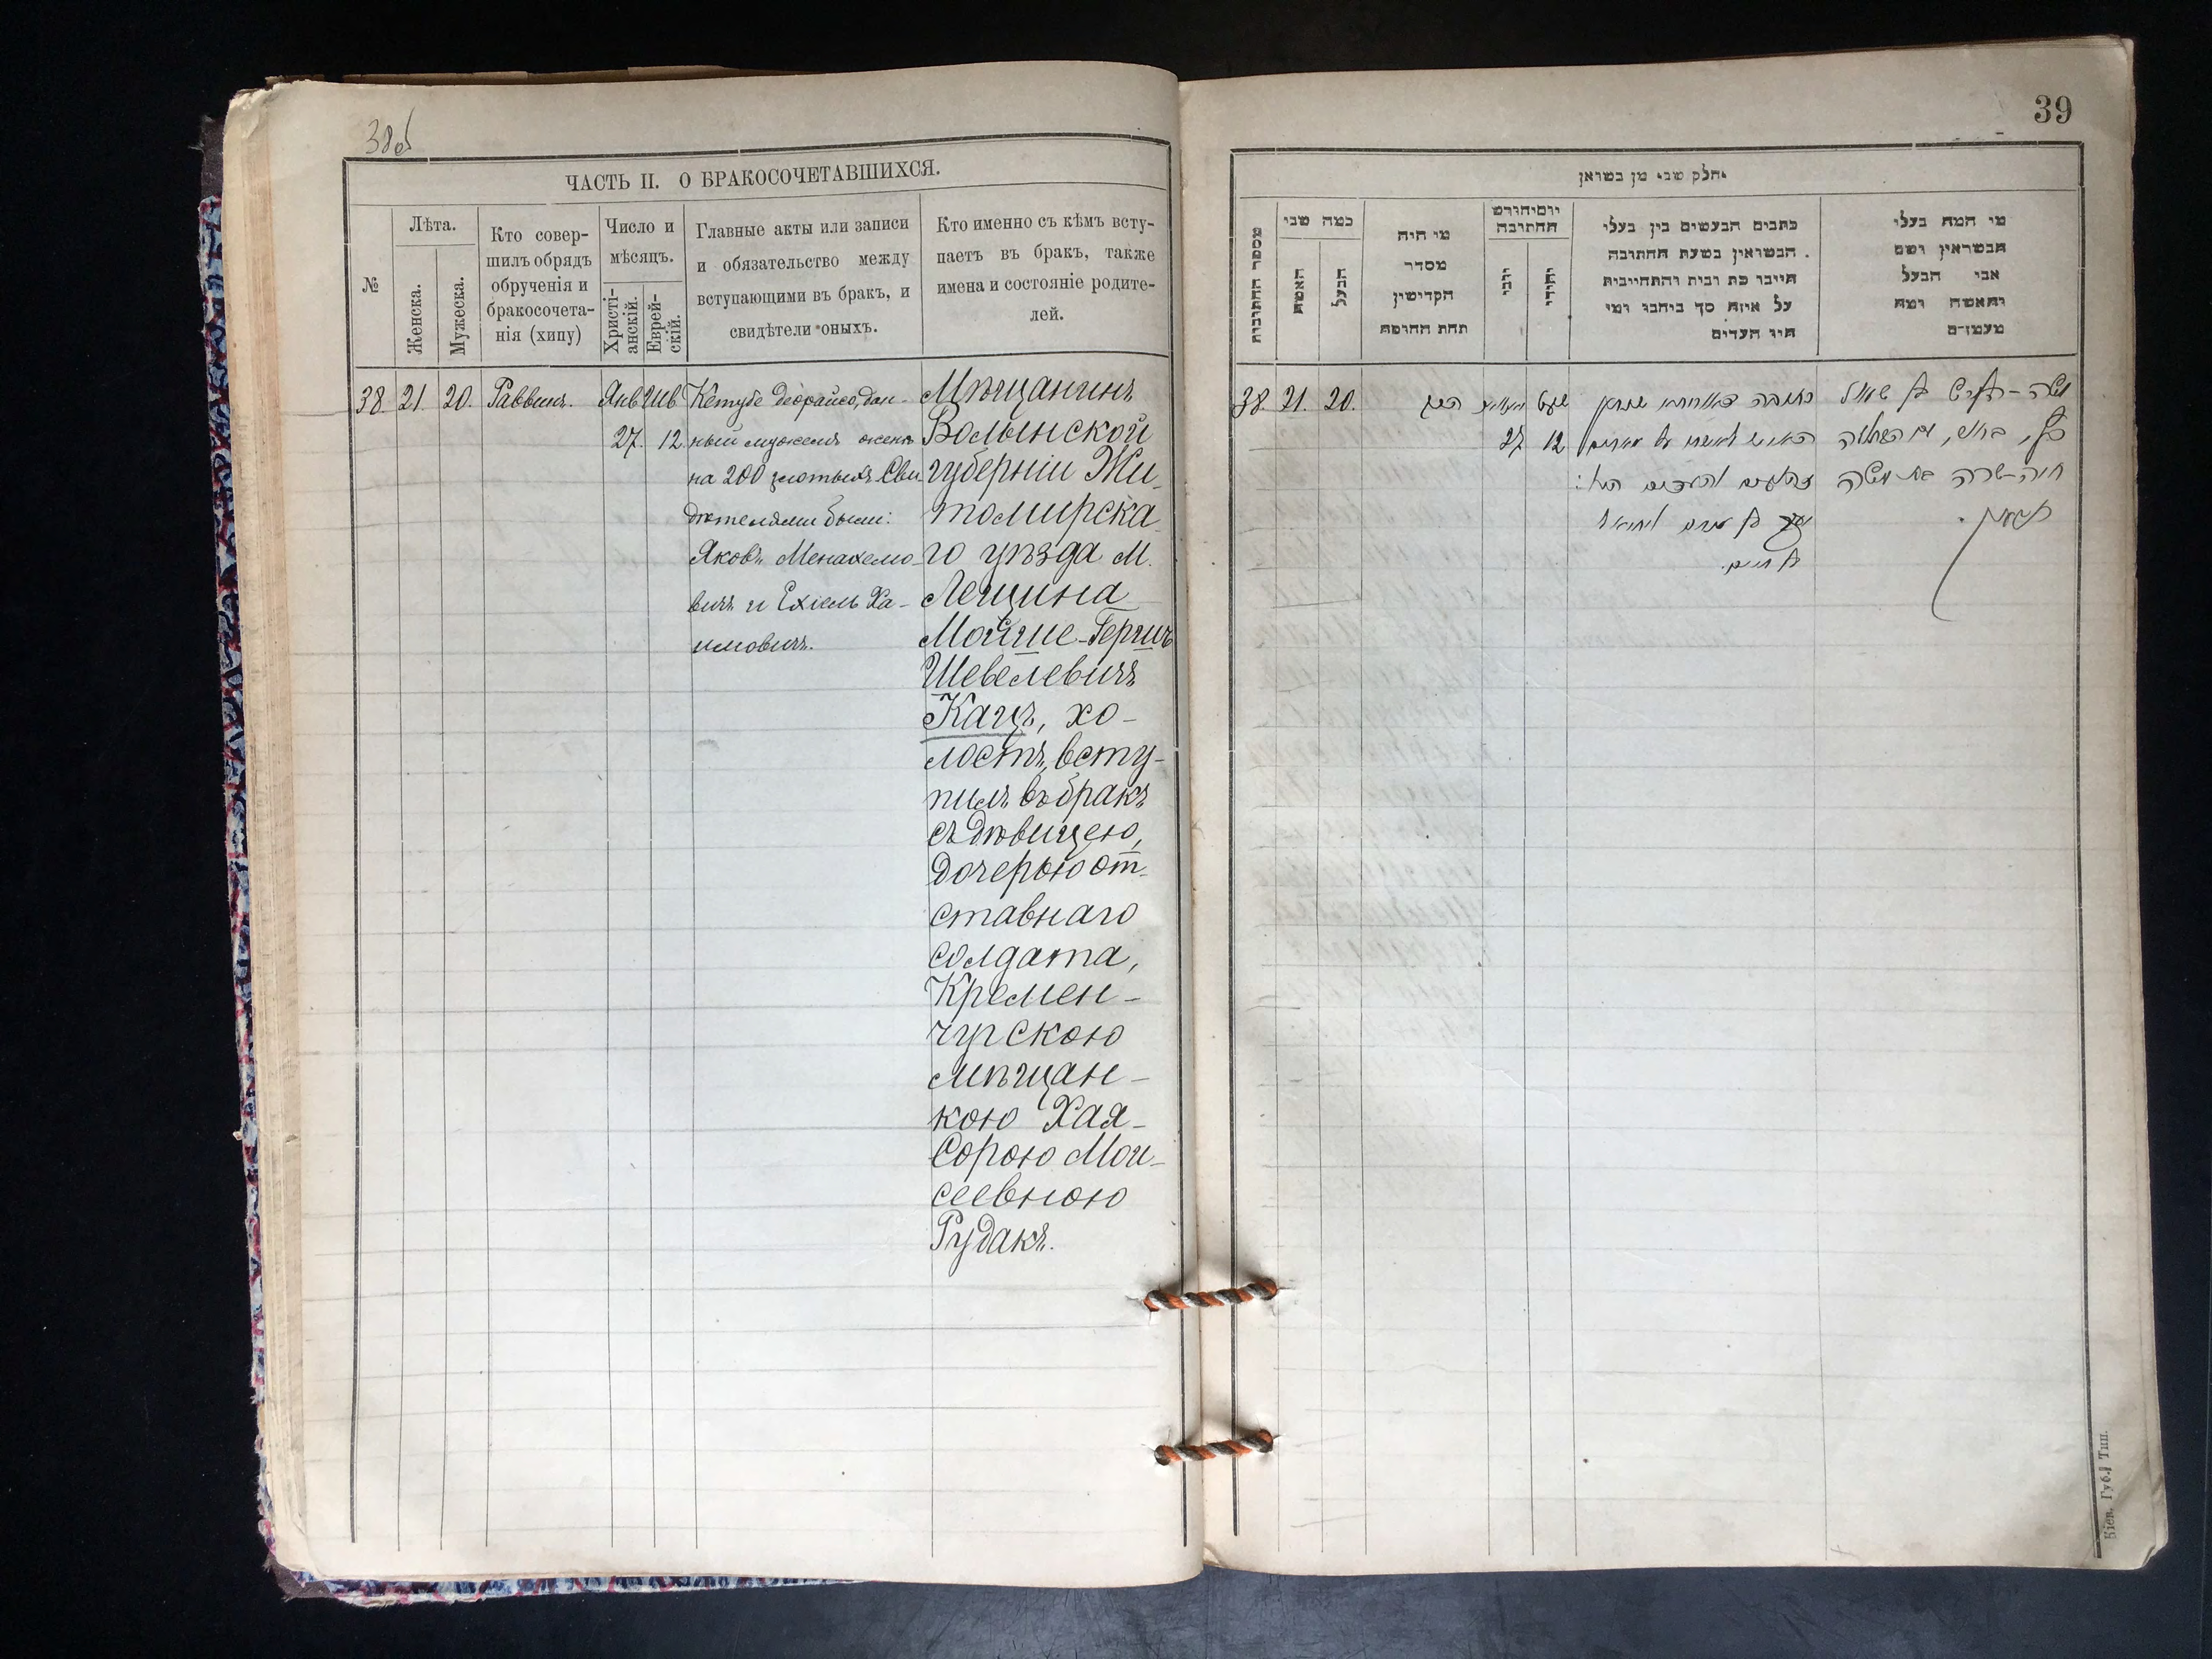 38об
ЧАСТЬ II. О БРАКОСОЧЕТАВШИХСЯ.
№
Лѣта.
Женска.
Мужеска.
Кто совер-
шилъ обрядъ
обрученія и
бракосочета-
нія (хипу)
Число и
мѣсяцъ.
Христі-
анскій.
Еврей-
скій.
Главные акты или записи
и обязательство между
вступающими въ бракъ, и
свидѣтели оныхъ.
Кто именно съ кѣмъ всту-
паетъ въ бракъ, также
имена и состояніе родите-
лей.
38. 21. 20. Раввинъ.
Янв.
27.
Шв.
12.
Кетубе деорайсо, дан-
ный мужемъ женѣ
на 200 злотыхъ. Сви-
дѣтелями были:
Яковъ Менахемо-
вичъ и Ехіель Ха-
имовичъ.
Мѣщанинъ
Волынской
губерніи Жи-
томирска-
го уѣзда м.
Лещина
Мойше-Гершъ
Шевелевичъ
Кацъ, хо-
лостъ, всту-
пилъ въ бракъ
съ дѣвицею,
дочерью от-
ставнаго
солдата,
Кремен-
чугскою
мѣщан-
кою Хая-
Сорою Мои-
сеевною
Рудакъ.
39
חלק שני מן נשואין
מספר החתונות
כמה שני
האשה
הבעל
מי היה
מסדר
הקדישין
תחת החופה
יום וחודש
החתונה
נוצרי
יהודי
כתבים הנעשים בין בעלי
הנשואין בשעת החתונה
היינו כת ובית והתחייבות
על איזה סך ניתנו ומי
היו העדים
מי המה בעלי
הנשואין ושם
אבי הבעל
והאשה ומה
מעמדם
38. 21. 20.
הרב
27
שבט
12
משה-הירש בן שאול
כץ, בחור, עם הבתולה
חיה-שרה בת משה
כתובה דאורייתא
בן חיים.
Кіев. Губ. Тип.